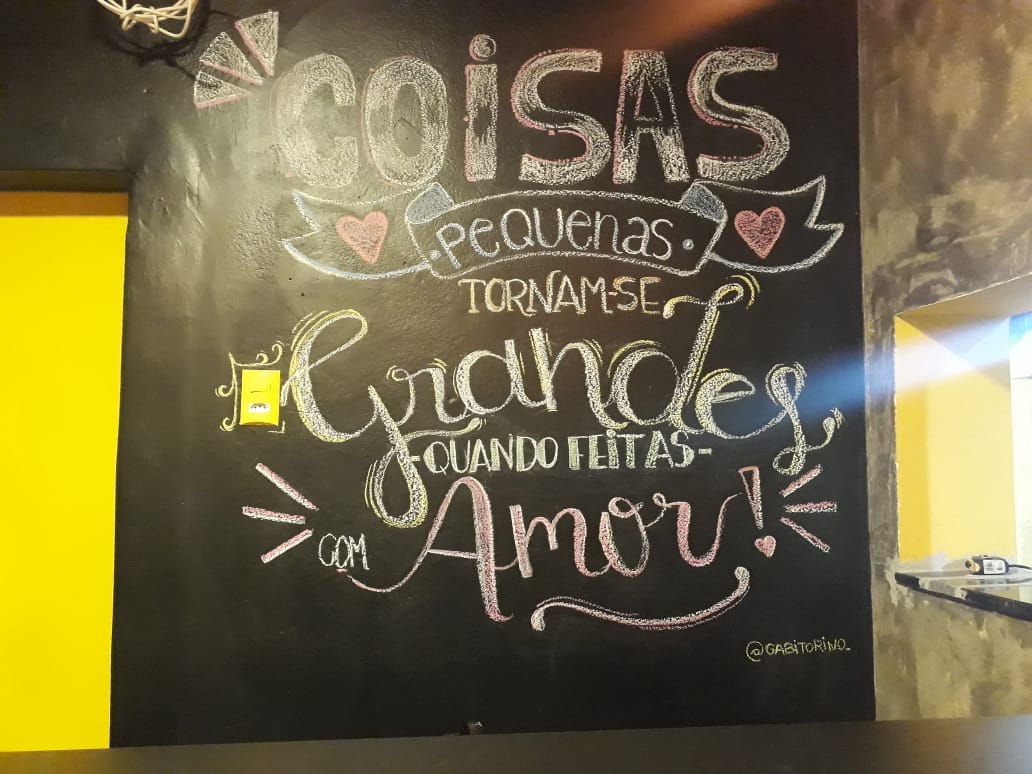 COISAS
PEQUENAS
TORNAM-SE
Grandes
-QUANDO FEITAS-
COM Amor!
@GABITORINO_